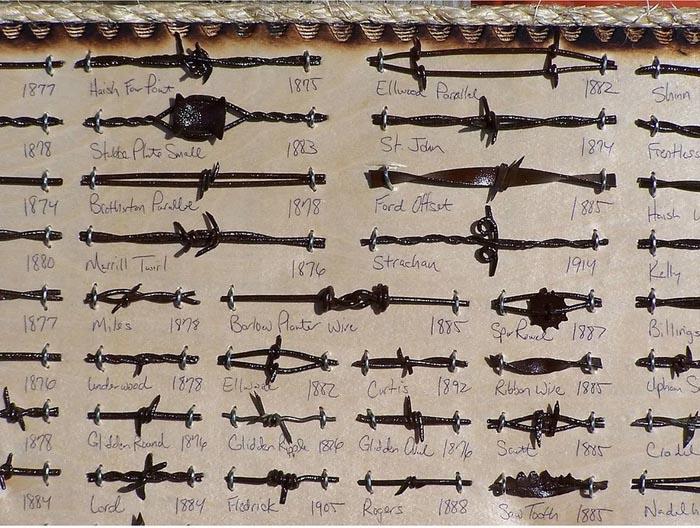 1877 Haish Four Point 1875 Ellwood Parallel 1882 Shinn
1878 Stubbe Plate Small 1883 St. John 1874
1874 Brotherton Parallel 1878 Ford Offset 1885 Haish
1880 Merrill Twirl 1876 Strachan 1914 Kelly
1877 Miles 1878 Barlow Planter Wire 1885 Spur Rowel 1887 Billings
1876 Underwood 1878 Ellwood 1882 Curtis 1892 Ribbon Wire 1885 Upham S
1878 Glidden Round 1876 Glidden Ripple 1876 Glidden Oval 1876 Scutt 1885
1884 Lord 1884 Fledrick 1905 Rogers 1888 Saw Tooth 1885